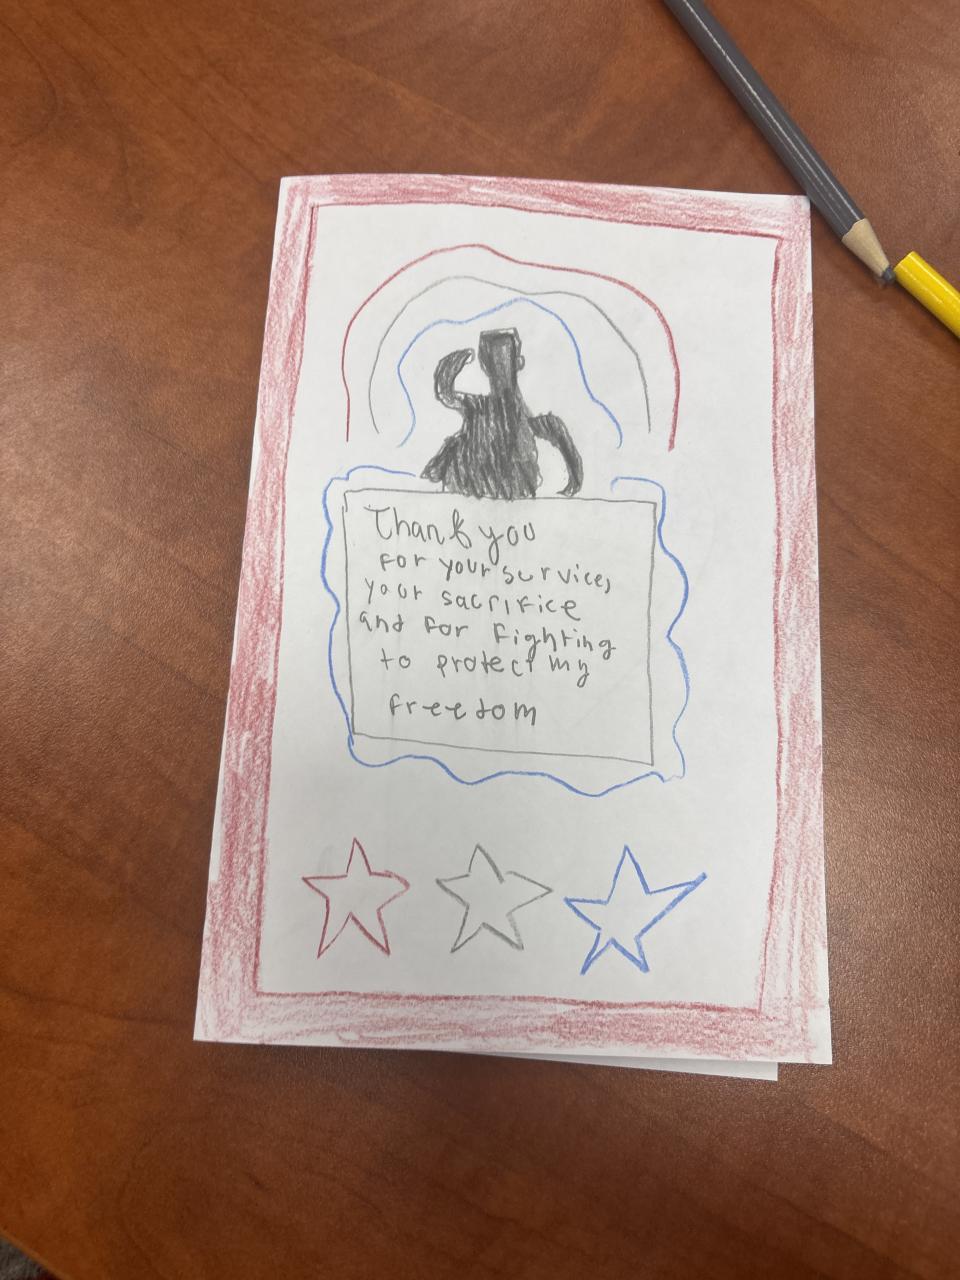 Thank you
for your service,
your sacrifice
and for fighting
to protect my
freedom